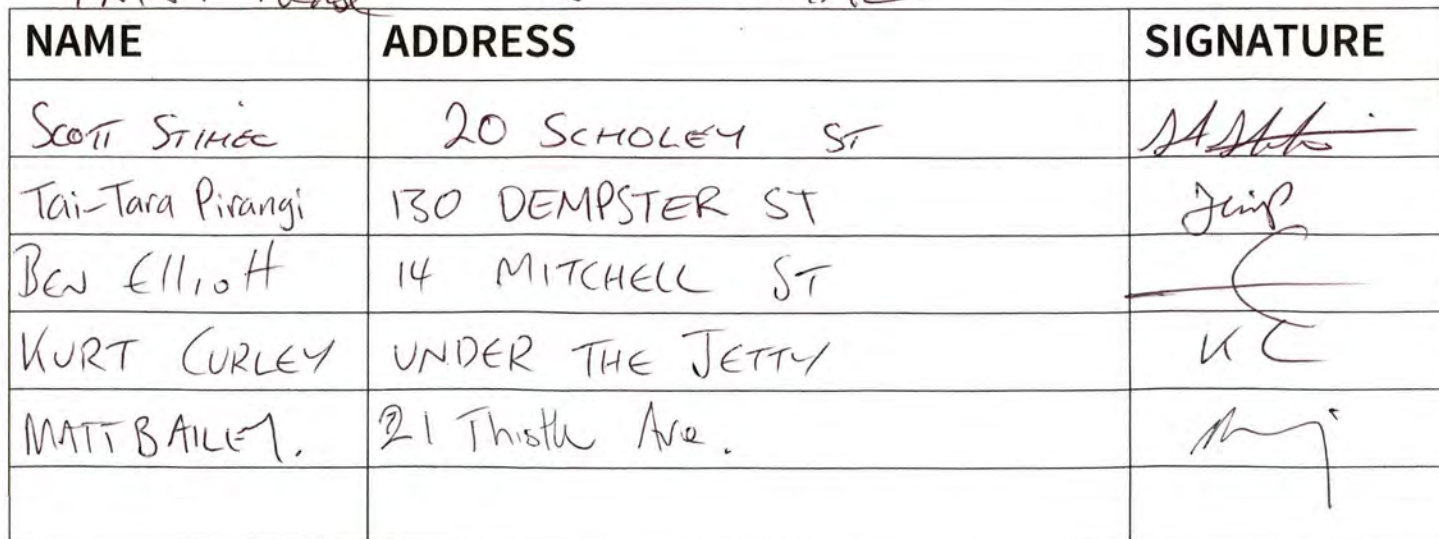 PRINT Please
NAME ADDRESS SIGNATURE
SCOTT STIHEC 20 SCHOLEY ST
Tai-Tara Pirangi 130 DEMPSTER ST
BEN Elliott 14 MITCHELL ST
KURT CURLEY UNDER THE JETTY KC
MATT BAILEY. 21 Thistle Ave.